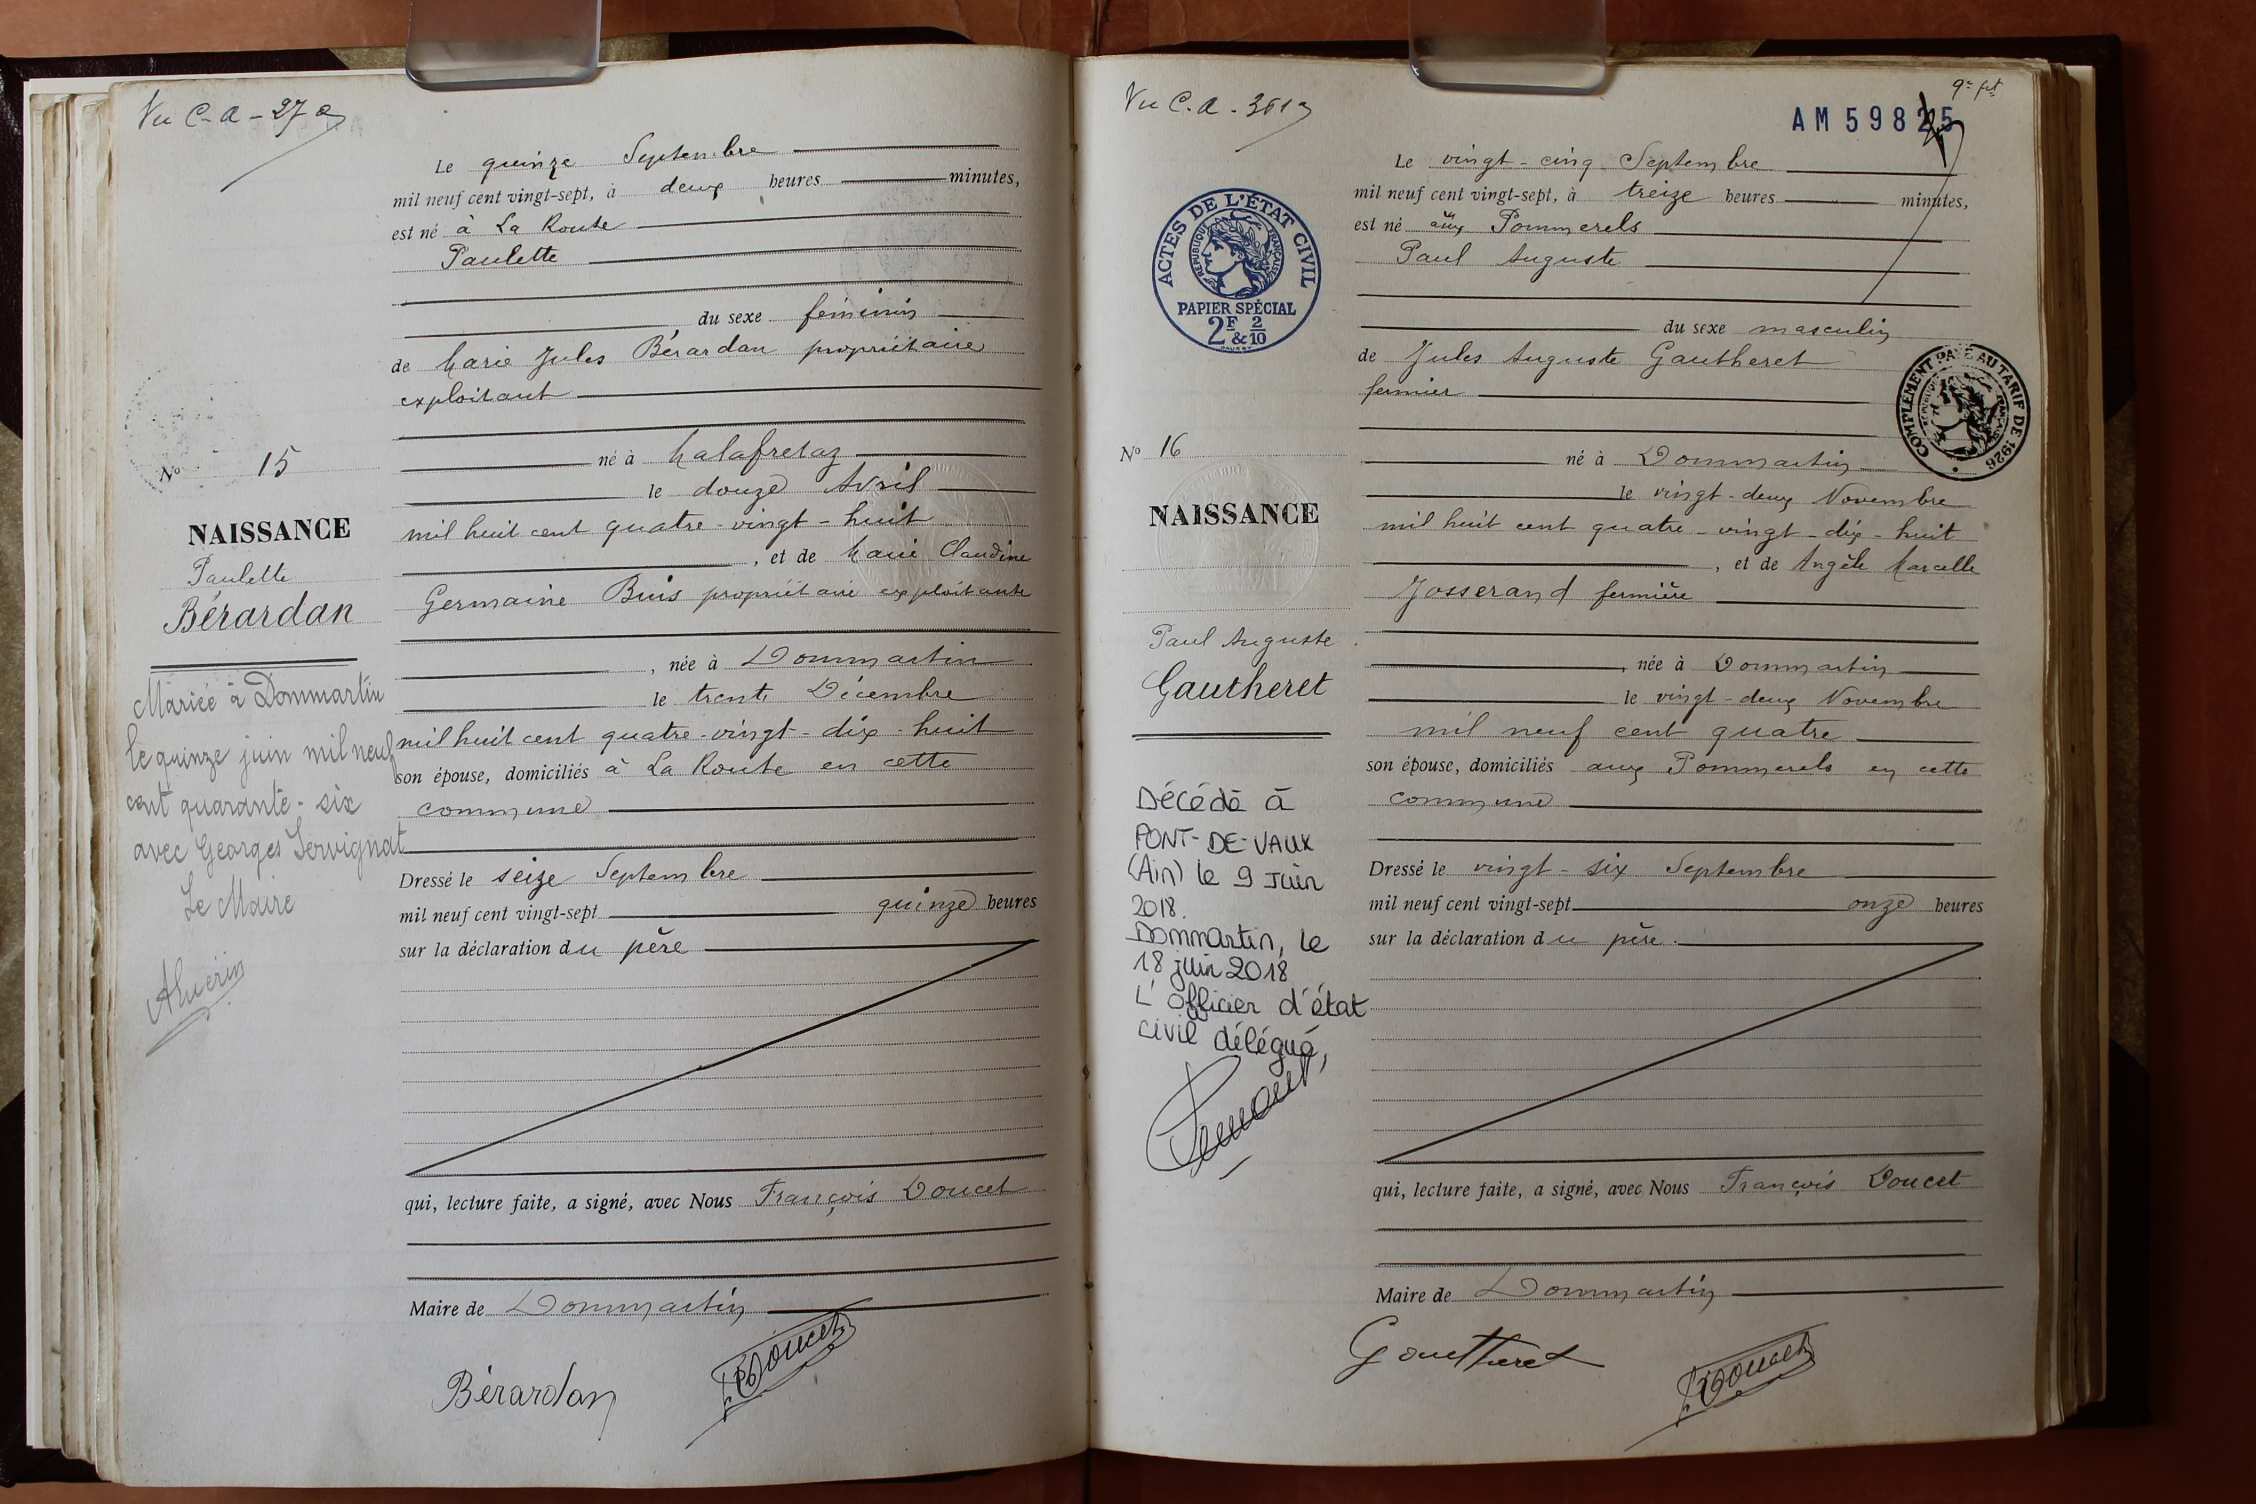 Vu C-a-27
Le quinze Septembre
mil neuf cent vingt-sept, à deux heures minutes,
est né à La Route
Paulette
du sexe féminin
de Marie Jules Bérardan propriétaire
exploitant
né à Malafretaz
le douze Avril
mil huit cent quatre-vingt-huit
, et de Marie Claudine
Germaine Buis propriétaire exploitante
, née à Dommartin
le trente Décembre
mil huit cent quatre-vingt-dix-huit
son épouse, domiciliés à La Route en cette
commune
Dressé le seize Septembre
mil neuf cent vingt-sept quinze heures
sur la déclaration du père
qui, lecture faite, a signé, avec Nous François Doucet
Maire de Dommartin
Bérardan
Doucet
No 15
NAISSANCE
Paulette
Bérardan
Mariée à Dommartin
le quinze juin mil neuf
cent quarante-six
avec Georges Servignat
Le Maire
Vu C.a.
9e fet
AM 59825
Le vingt-cinq Septembre
mil neuf cent vingt-sept, à treize heures minutes,
est né aux Pommerels
Paul Auguste
du sexe masculin
de Jules Auguste Gautheret
fermier
né à Dommartin
le vingt-deux Novembre
mil huit cent quatre-vingt-dix-huit
, et de Angèle Marcelle
Josserand fermière
, née à Dommartin
le vingt-deux Novembre
mil neuf cent quatre
son épouse, domiciliés aux Pommerels en cette
commune
Dressé le vingt-six Septembre
mil neuf cent vingt-sept onze heures
sur la déclaration du père.
qui, lecture faite, a signé, avec Nous François Doucet
Maire de Dommartin
Gautheret
Doucet
ACTES DE L'ÉTAT CIVIL
RÉPUBLIQUE FRANÇAISE
PAPIER SPÉCIAL
2F & 2/10
COMPLÉMENT PAYÉ AU TARIF DE 1926
No 16
NAISSANCE
Paul Auguste
Gautheret
Décédé à
PONT-DE-VAUX
(Ain) le 9 juin
2018.
Dommartin, le
18 juin 2018
L'Officier d'état
civil délégué,